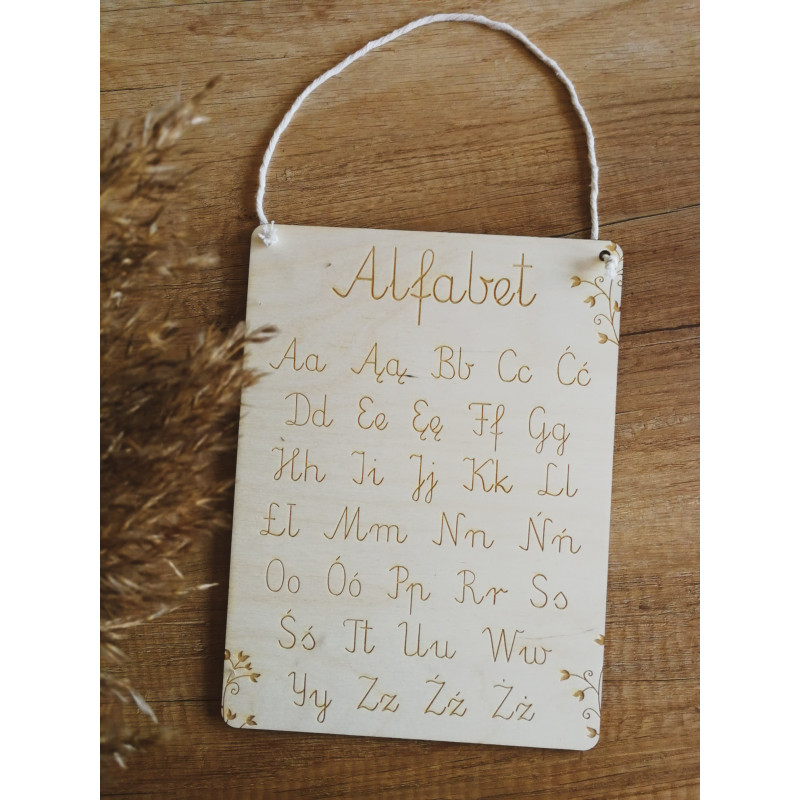 Alfabet
Aa Ąą Bb Cc Ćć
Dd Ee Ęę Ff Gg
Hh Ii Jj Kk Ll
Łł Mm Nn Ńń
Oo Óó Pp Rr Ss
Śś Tt Uu Ww
Yy Zz Źź Żż